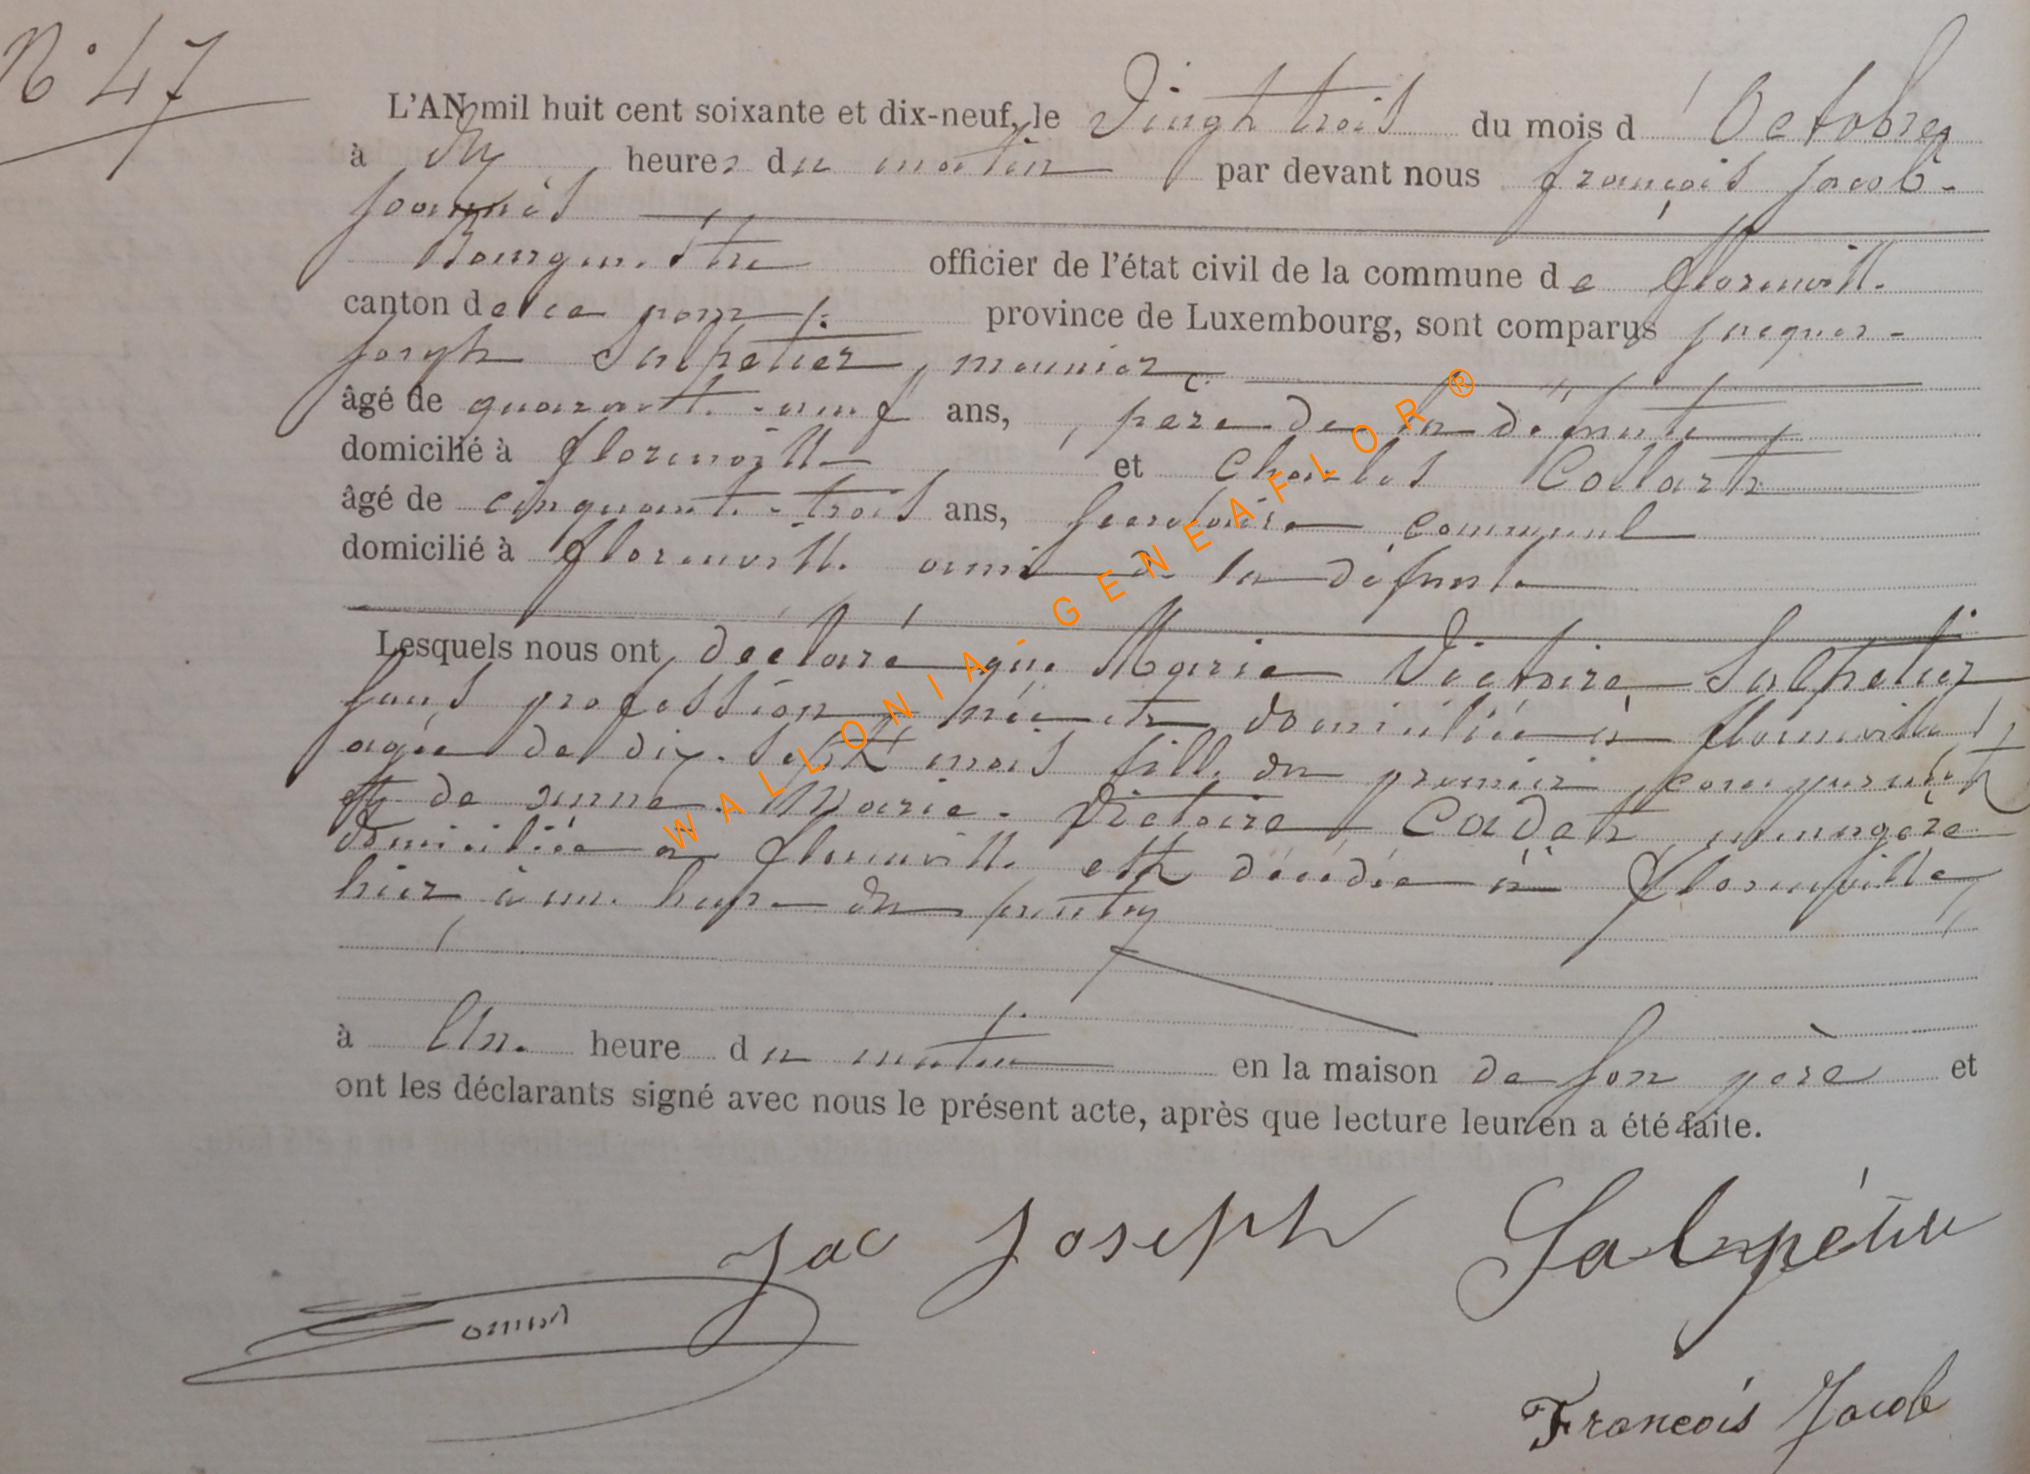 N° 47
L'AN mil huit cent soixante et dix-neuf, le Vingt trois du mois d'Octobre,
à dix heures du matin par devant nous françois Jacob-
Joannès
Bourgmestre officier de l'état civil de la commune de florenville
canton de province de Luxembourg, sont comparus Jacques-
Joseph Salpetier, meunier
âgé de quarante-neuf ans, père de la défunte
domicilié à florenville et Charles Collart
âgé de cinquante-trois ans, Secrétaire communal
domicilié à florenville ami de la défunte
Lesquels nous ont déclaré que Marie Victoire Salpetier
sans profession née et domiciliée à florenville
agée de dix-sept mois fille du premier comparant
et de Marie-Victoire Cadet ménagère
domiciliée à florenville est décédée à florenville,
hier à une heure du matin
à Une heure du matin en la maison de son père et
ont les déclarants signé avec nous le présent acte, après que lecture leur en a été faite.
Jac Joseph Salpétier
François Jacob
WALLONIA-GENEAFLOR®